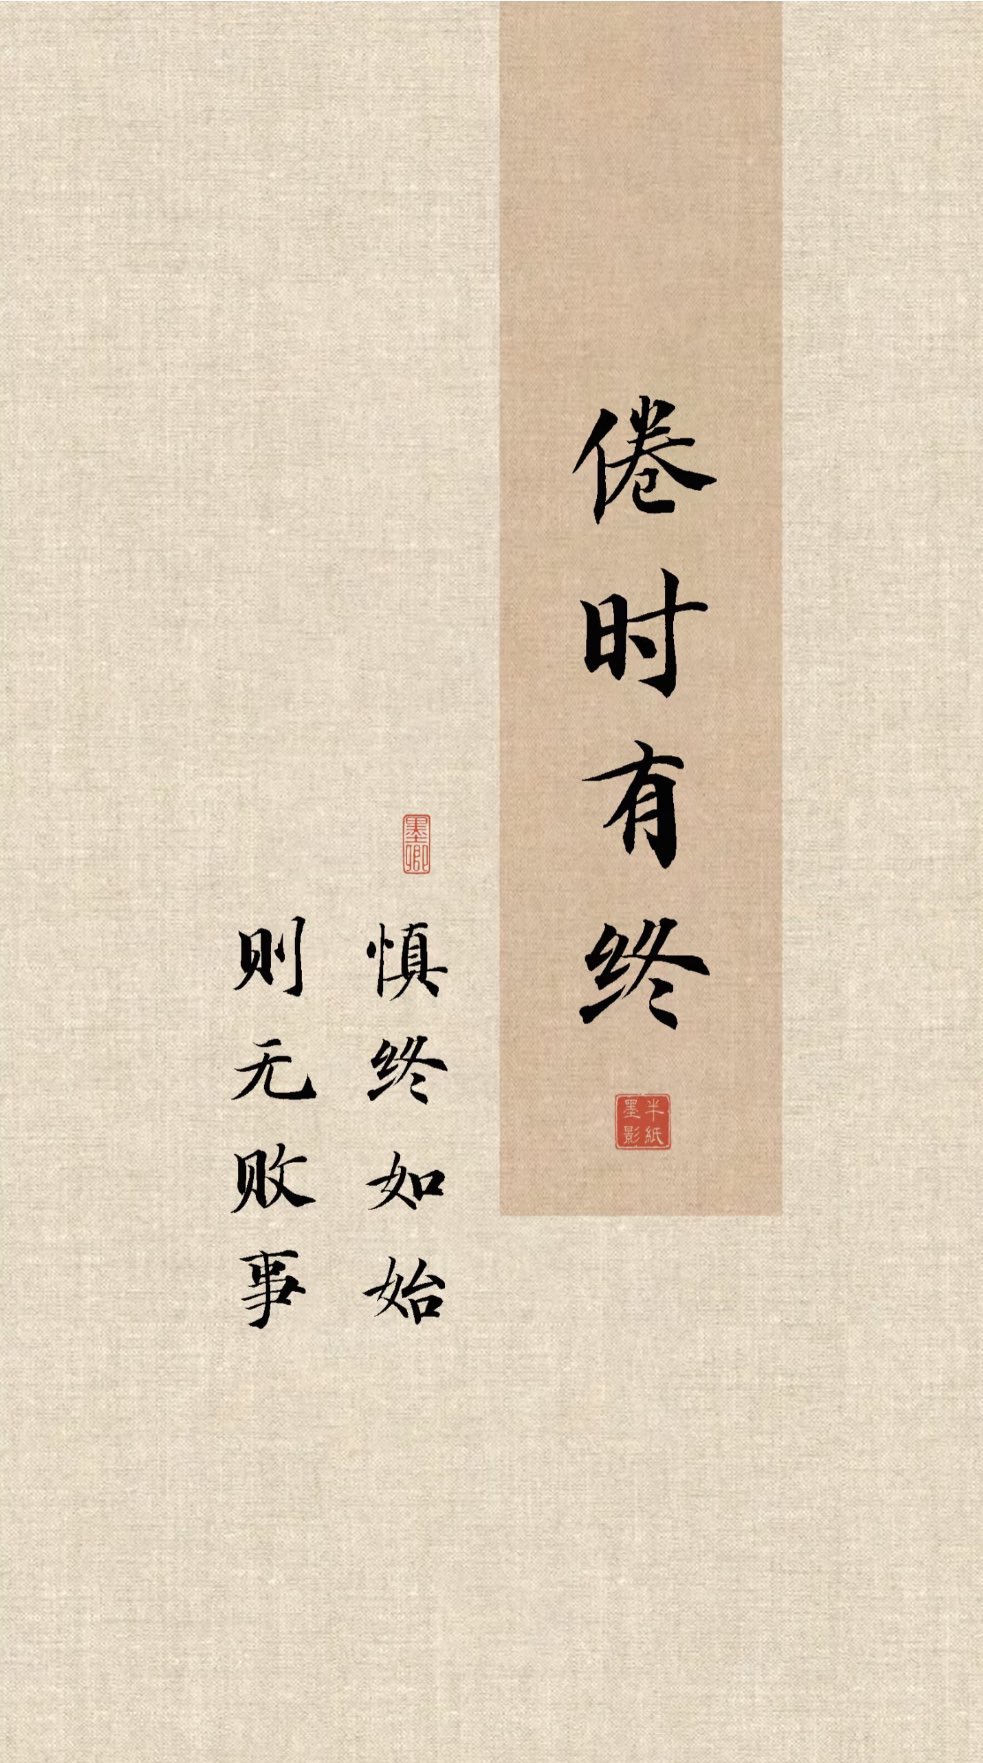 倦时有终
半紙
墨影
墨卿
慎终如始
则无败事